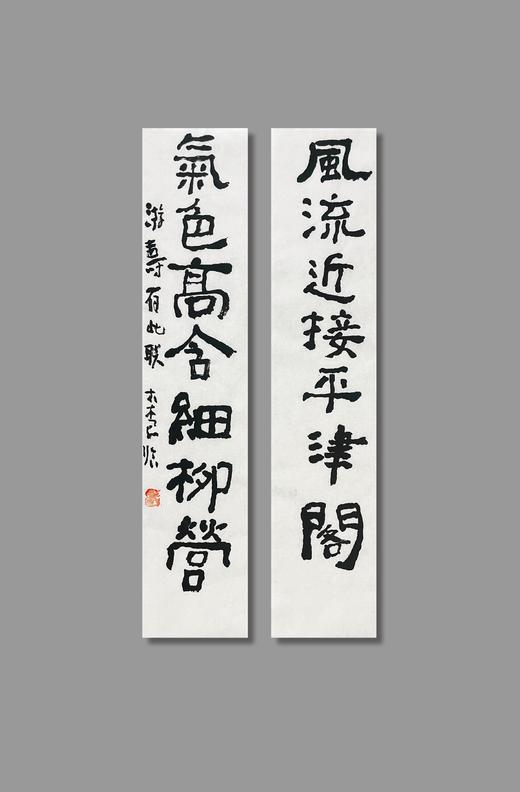 風流近接平津閣
氣色高含細柳營
游壽有此聯
臨